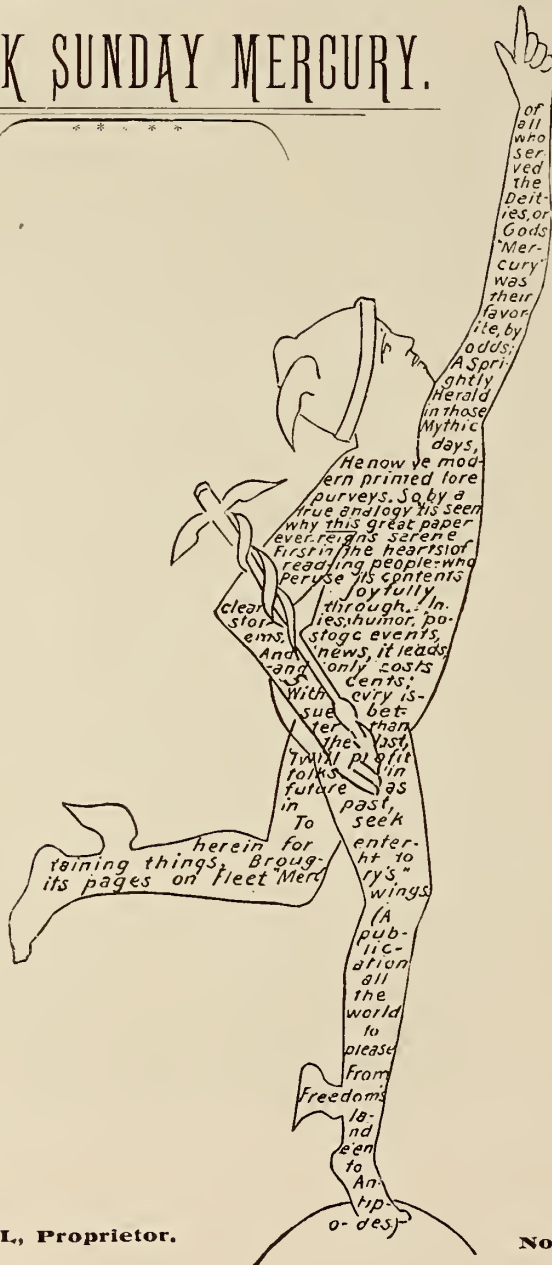 K SUNDAY MERCURY.
* * * * *
of
all
who
ser
ved
the
Deit-
ies, or
Gods
"Mer-
cury"
was
their
favor-
ite, by
odds;
A Spri-
ghtly
Herald
in those
Mythic
days,
He now ye mod-
ern printed lore
purveys. So by a
true analogy tis seen
why this great paper
ever reigns serene
First in the hearts of
reading people-who
Peruse its contents
joyfully
through. In
clear stor- ies, humor, po-
ems, stage events,
And news, it leads,
-and only costs
5 cents;
With ev'ry is-
sue bet-
ter than
the last,
Twill profit
folks in
future as
in past,
To seek
herein for enter-
taining things, Broug- ht to
its pages on fleet "Merc ry's"
wings
(A
pub-
lic-
ation
all
the
world
to
please
From
Freedom's
la-
nd
e'en
to
An-
tip-
o-des)
L, Proprietor.
No